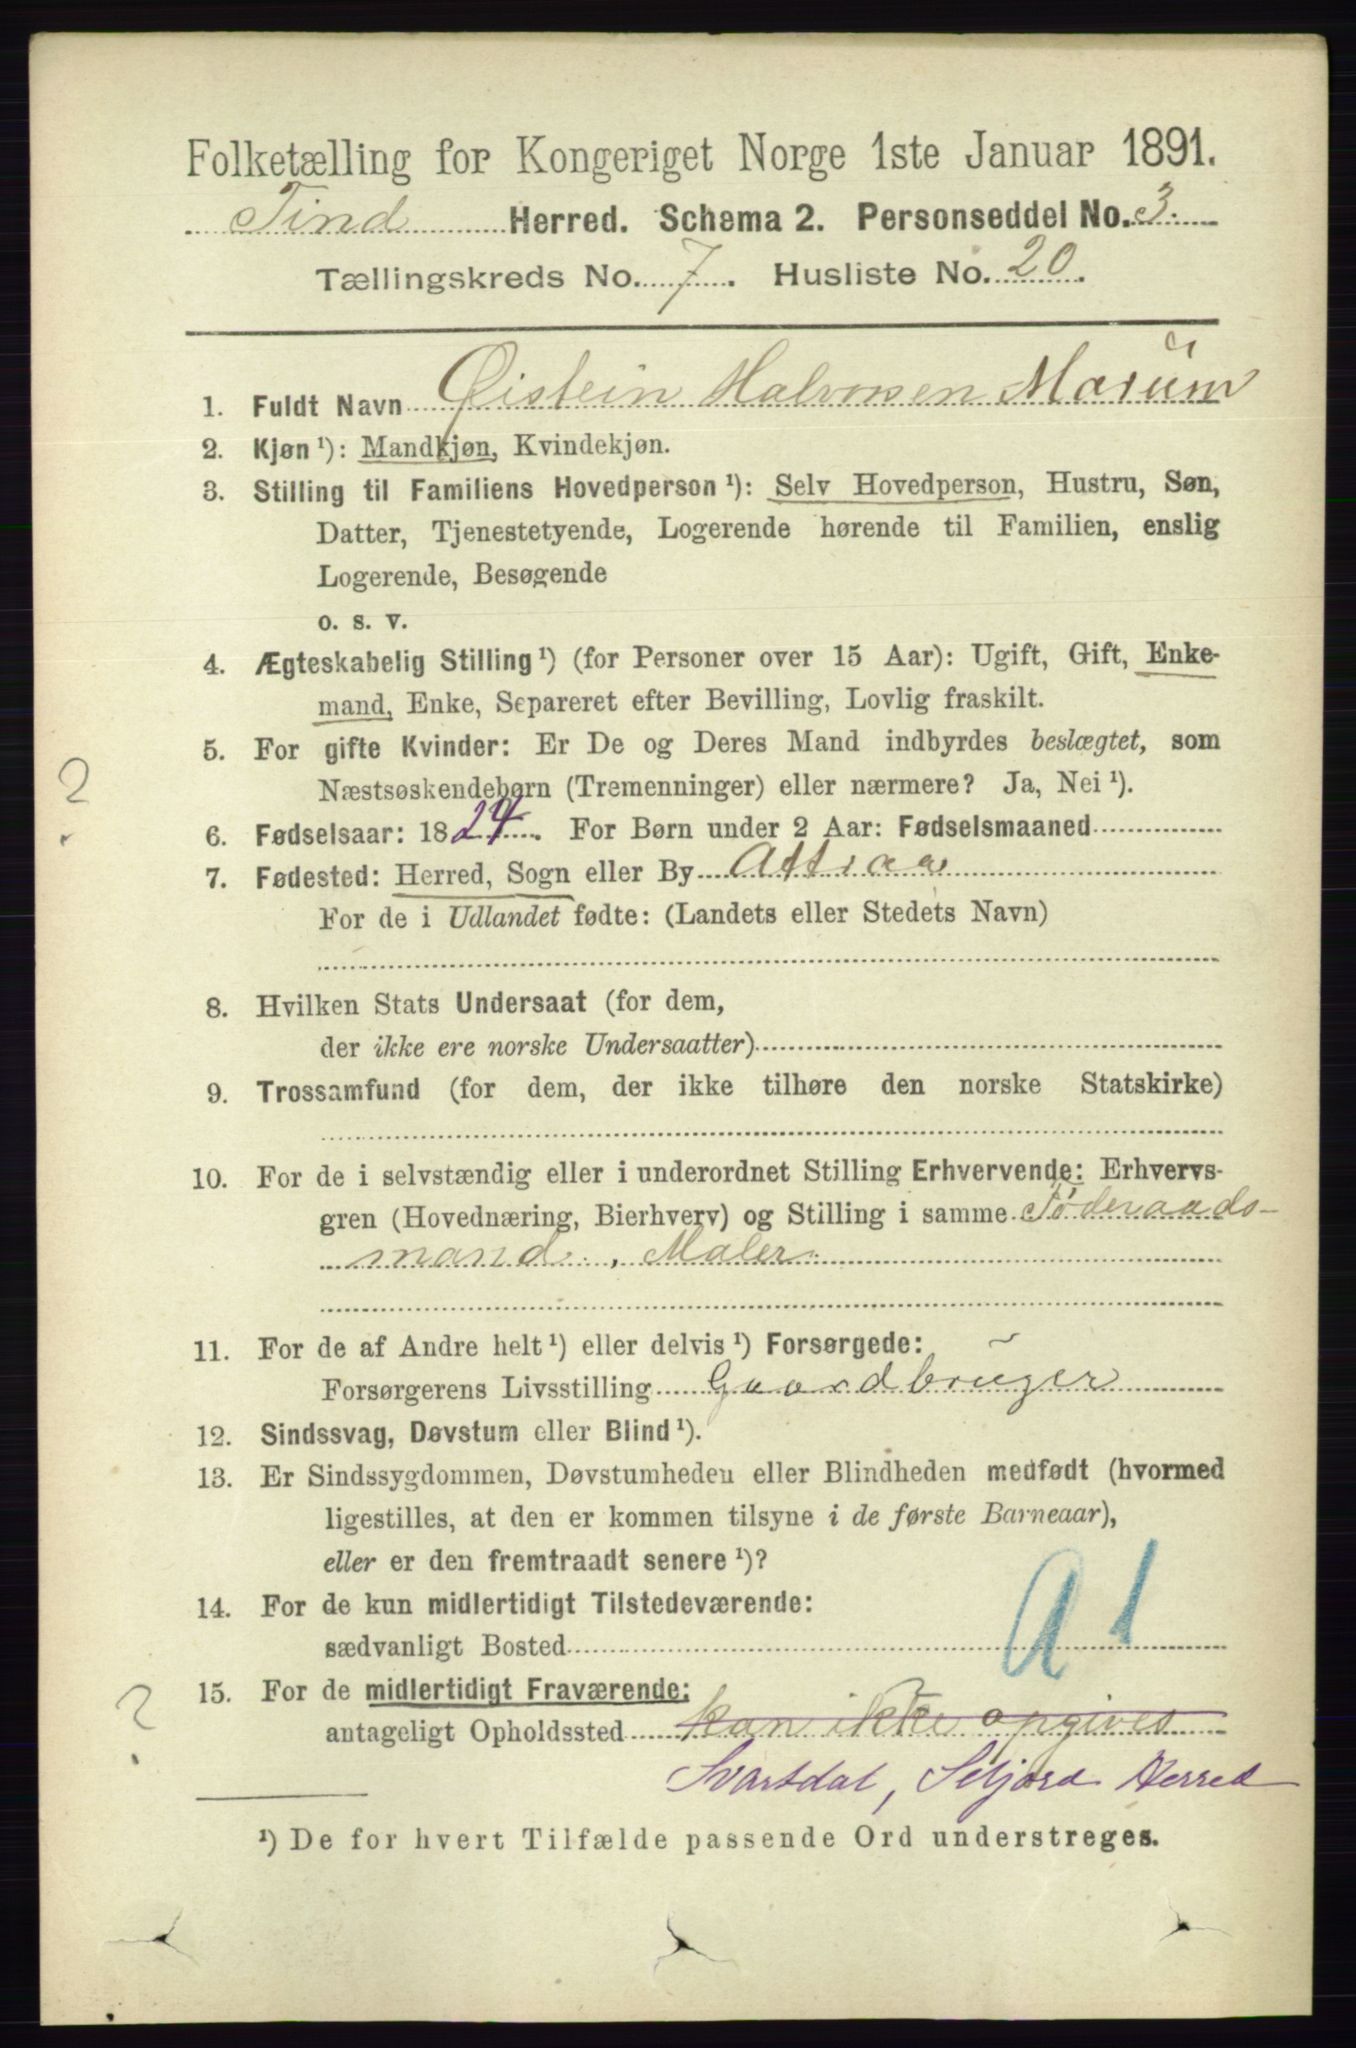 Folketælling for Kongeriget Norge 1ste Januar 1891.
Tind Herred. Schema 2. Personseddel No. 3.
Tællingskreds No. 7. Husliste No. 20.
1. Fuldt Navn Øistein Halvorsen Marum
2. Kjøn ¹): Mandkjøn, Kvindekjøn.
3. Stilling til Familiens Hovedperson ¹): Selv Hovedperson, Hustru, Søn,
Datter, Tjenestetyende, Logerende hørende til Familien, enslig
Logerende, Besøgende
o. s. v.
4. Ægteskabelig Stilling ¹) (for Personer over 15 Aar): Ugift, Gift, Enke-
mand, Enke, Separeret efter Bevilling, Lovlig fraskilt.
5. For gifte Kvinder: Er De og Deres Mand indbyrdes beslægtet, som
?
Næstsøskendebørn (Tremenninger) eller nærmere? Ja, Nei ¹).
6. Fødselsaar: 1824. For Børn under 2 Aar: Fødselsmaaned
7. Fødested: Herred, Sogn eller By Attraa
For de i Udlandet fødte: (Landets eller Stedets Navn)
8. Hvilken Stats Undersaat (for dem,
der ikke ere norske Undersaatter)
9. Trossamfund (for dem, der ikke tilhøre den norske Statskirke)
10. For de i selvstændig eller i underordnet Stilling Erhvervende: Erhvervs-
gren (Hovednæring, Bierhverv) og Stilling i samme Føderaads-
mand, Maler
11. For de af Andre helt ¹) eller delvis ¹) Forsørgede:
Forsørgerens Livsstilling Gaardbruger
12. Sindssvag, Døvstum eller Blind ¹).
13. Er Sindssygdommen, Døvstumheden eller Blindheden medfødt (hvormed
ligestilles, at den er kommen tilsyne i de første Barneaar),
eller er den fremtraadt senere ¹)?
14. For de kun midlertidigt Tilstedeværende:
sædvanligt Bosted
A 1
15. For de midlertidigt Fraværende:
?
antageligt Opholdssted kan ikke opgives
Svartdal, Seljord Herred
¹) De for hvert Tilfælde passende Ord understreges.